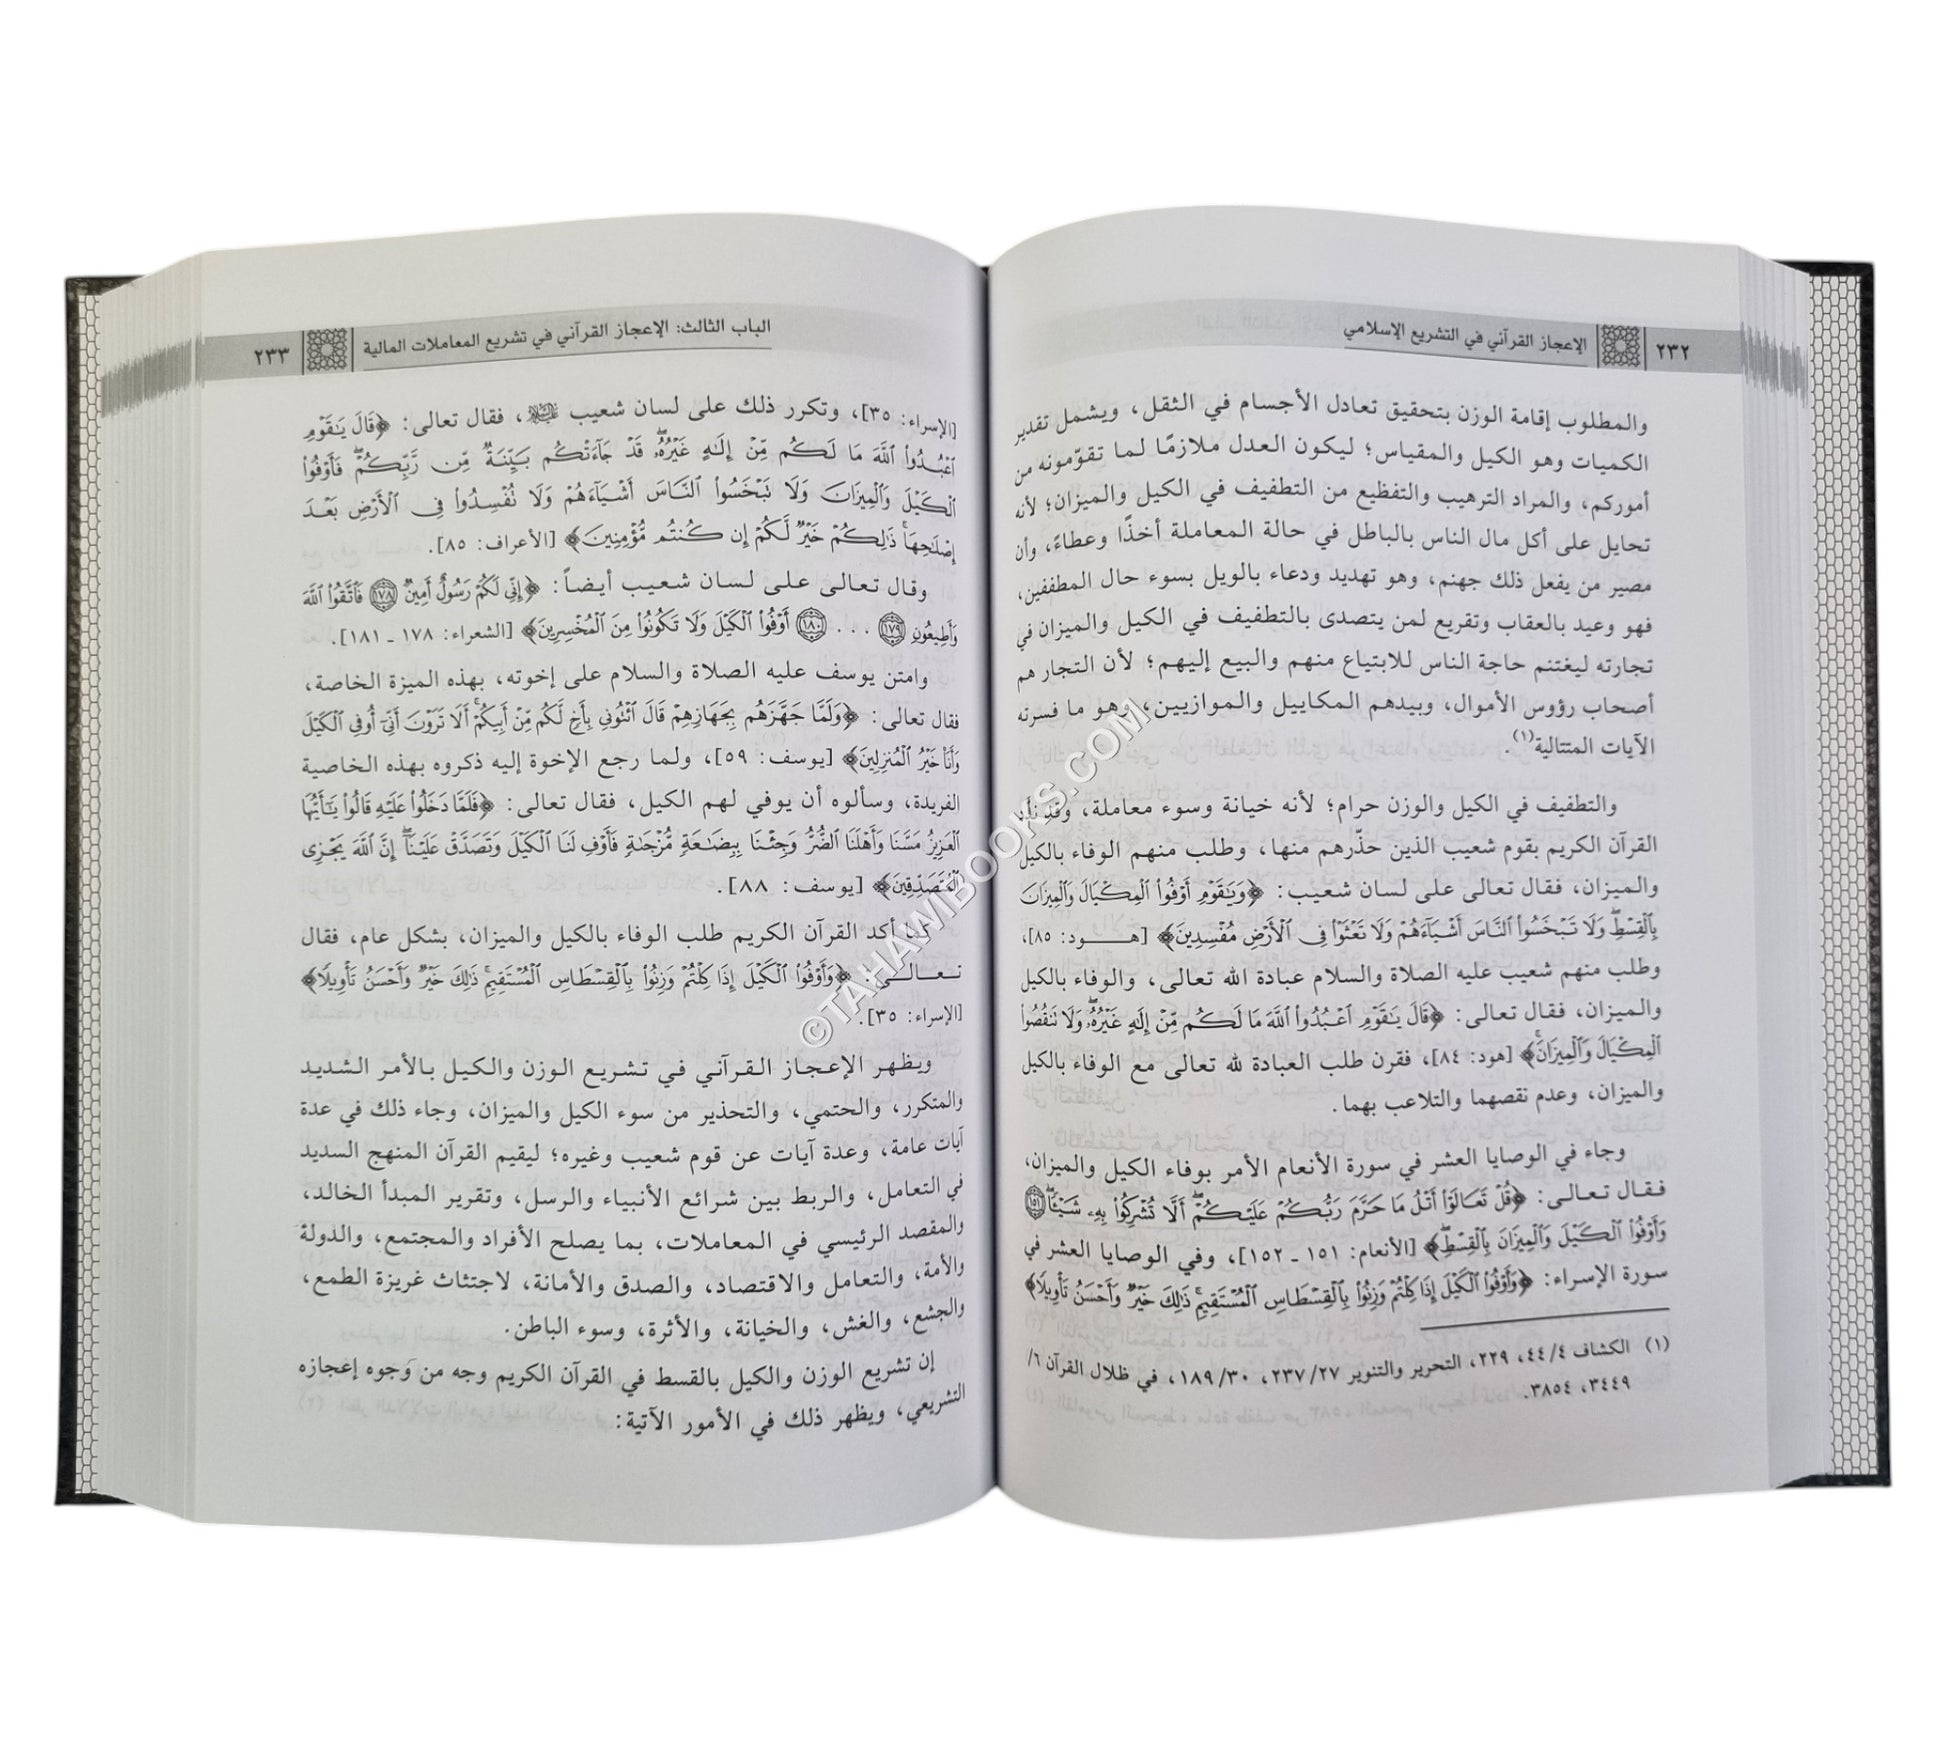 ٢٣٢ الإعجاز القرآني في التشريع الإسلامي
والمطلوب إقامة الوزن بتحقيق تعادل الأجسام في الثقل، ويشمل تقدير
الكميات وهو الكيل والمقياس؛ ليكون العدل ملازمًا لما تقوّمونه من
أموركم، والمراد الترهيب والتفظيع من التطفيف في الكيل والميزان؛ لأنه
تحايل على أكل مال الناس بالباطل في حالة المعاملة أخذًا وعطاءً، وأن
مصير من يفعل ذلك جهنم، وهو تهديد ودعاء بالويل بسوء حال المطففين،
فهو وعيد بالعقاب وتقريع لمن يتصدى بالتطفيف في الكيل والميزان في
تجارته ليغتنم حاجة الناس للابتياع منهم والبيع إليهم؛ لأن التجار هم
أصحاب رؤوس الأموال، وبيدهم المكاييل والموازيين، وهو ما فسرته
الآيات المتتالية(١).
والتطفيف في الكيل والوزن حرام؛ لأنه خيانة وسوء معاملة، وقد
القرآن الكريم بقوم شعيب الذين حذّرهم منها، وطلب منهم الوفاء بالكيل
والميزان، فقال تعالى على لسان شعيب: ﴿وَيَٰقَوْمِ أَوْفُوا۟ ٱلْمِكْيَالَ وَٱلْمِيزَانَ
بِٱلْقِسْطِۖ وَلَا تَبْخَسُوا۟ ٱلنَّاسَ أَشْيَآءَهُمْ وَلَا تَعْثَوْا۟ فِى ٱلْأَرْضِ مُفْسِدِينَ﴾ [هـود: ٨٥]،
وطلب منهم شعيب عليه الصلاة والسلام عبادة الله تعالى، والوفاء بالكيل
والميزان، فقال تعالى: ﴿قَالَ يَٰقَوْمِ ٱعْبُدُوا۟ ٱللَّهَ مَا لَكُم مِّنْ إِلَٰهٍ غَيْرُهُۥۖ وَلَا تَنقُصُوا۟
ٱلْمِكْيَالَ وَٱلْمِيزَانَۚ﴾ [هود: ٨٤]، فقرن طلب العبادة لله تعالى مع الوفاء بالكيل
والميزان، وعدم نقصهما والتلاعب بهما.
وجاء في الوصايا العشر في سورة الأنعام الأمر بوفاء الكيل والميزان،
فقال تعالى: ﴿قُلْ تَعَالَوْا۟ أَتْلُ مَا حَرَّمَ رَبُّكُمْ عَلَيْكُمْۖ أَلَّا تُشْرِكُوا۟ بِهِۦ شَيْـًٔاۖ ١٥١
وَأَوْفُوا۟ ٱلْكَيْلَ وَٱلْمِيزَانَ بِٱلْقِسْطِۖ﴾ [الأنعام: ١٥١ ـ ١٥٢]، وفي الوصايا العشر في
سورة الإسراء: ﴿وَأَوْفُوا۟ ٱلْكَيْلَ إِذَا كِلْتُمْ وَزِنُوا۟ بِٱلْقِسْطَاسِ ٱلْمُسْتَقِيمِۚ ذَٰلِكَ خَيْرٌ وَأَحْسَنُ تَأْوِيلًا﴾
(١) الكشاف ٤/ ٤٤، ٢٢٩، التحرير والتنوير ٢٧/ ٢٣٧، ٣٠/ ١٨٩، في ظلال القرآن ٦/
٣٤٤٩، ٣٨٥٤.
الباب الثالث: الإعجاز القرآني في تشريع المعاملات المالية ٢٣٣
[الإسراء: ٣٥]، وتكرر ذلك على لسان شعيب عليه السلام، فقال تعالى: ﴿قَالَ يَٰقَوْمِ
ٱعْبُدُوا۟ ٱللَّهَ مَا لَكُم مِّنْ إِلَٰهٍ غَيْرُهُۥۖ قَدْ جَآءَتْكُم بَيِّنَةٌ مِّن رَّبِّكُمْۖ فَأَوْفُوا۟
ٱلْكَيْلَ وَٱلْمِيزَانَ وَلَا تَبْخَسُوا۟ ٱلنَّاسَ أَشْيَآءَهُمْ وَلَا تُفْسِدُوا۟ فِى ٱلْأَرْضِ بَعْدَ
إِصْلَٰحِهَاۚ ذَٰلِكُمْ خَيْرٌ لَّكُمْ إِن كُنتُم مُّؤْمِنِينَ﴾ [الأعراف: ٨٥].
وقال تعالى على لسان شعيب أيضاً: ﴿إِنِّى لَكُمْ رَسُولٌ أَمِينٌ ١٧٨ فَٱتَّقُوا۟ ٱللَّهَ
وَأَطِيعُونِ ١٧٩ ... ١٨٠ أَوْفُوا۟ ٱلْكَيْلَ وَلَا تَكُونُوا۟ مِنَ ٱلْمُخْسِرِينَ﴾ [الشعراء: ١٧٨ ـ ١٨١].
وامتن يوسف عليه الصلاة والسلام على إخوته، بهذه الميزة الخاصة،
فقال تعالى: ﴿وَلَمَّا جَهَّزَهُم بِجَهَازِهِمْ قَالَ ٱئْتُونِى بِأَخٍ لَّكُم مِّنْ أَبِيكُمْۚ أَلَا تَرَوْنَ أَنِّىٓ أُوفِى ٱلْكَيْلَ
وَأَنَا۠ خَيْرُ ٱلْمُنزِلِينَ﴾ [يوسف: ٥٩]، ولما رجع الإخوة إليه ذكروه بهذه الخاصية
الفريدة، وسألوه أن يوفي لهم الكيل، فقال تعالى: ﴿فَلَمَّا دَخَلُوا۟ عَلَيْهِ قَالُوا۟ يَٰٓأَيُّهَا
ٱلْعَزِيزُ مَسَّنَا وَأَهْلَنَا ٱلضُّرُّ وَجِئْنَا بِبِضَٰعَةٍ مُّزْجَىٰةٍ فَأَوْفِ لَنَا ٱلْكَيْلَ وَتَصَدَّقْ عَلَيْنَآۖ إِنَّ ٱللَّهَ يَجْزِى
ٱلْمُتَصَدِّقِينَ﴾ [يوسف: ٨٨].
كما أكد القرآن الكريم طلب الوفاء بالكيل والميزان، بشكل عام، فقال
تعالى: ﴿وَأَوْفُوا۟ ٱلْكَيْلَ إِذَا كِلْتُمْ وَزِنُوا۟ بِٱلْقِسْطَاسِ ٱلْمُسْتَقِيمِۚ ذَٰلِكَ خَيْرٌ وَأَحْسَنُ تَأْوِيلًا﴾
[الإسراء: ٣٥].
ويظهر الإعجاز القرآني في تشريع الوزن والكيل بالأمر الشديد
والمتكرر، والحتمي، والتحذير من سوء الكيل والميزان، وجاء ذلك في عدة
آيات عامة، وعدة آيات عن قوم شعيب وغيره؛ ليقيم القرآن المنهج السديد
في التعامل، والربط بين شرائع الأنبياء والرسل، وتقرير المبدأ الخالد،
والمقصد الرئيسي في المعاملات، بما يصلح الأفراد والمجتمع، والدولة
والأمة، والتعامل والاقتصاد، والصدق والأمانة، لاجتثاث غريزة الطمع،
والجشع، والغش، والخيانة، والأثرة، وسوء الباطن.
إن تشريع الوزن والكيل بالقسط في القرآن الكريم وجه من وجوه إعجازه
التشريعي، ويظهر ذلك في الأمور الآتية:
©TAHAWIBOOKS.COM